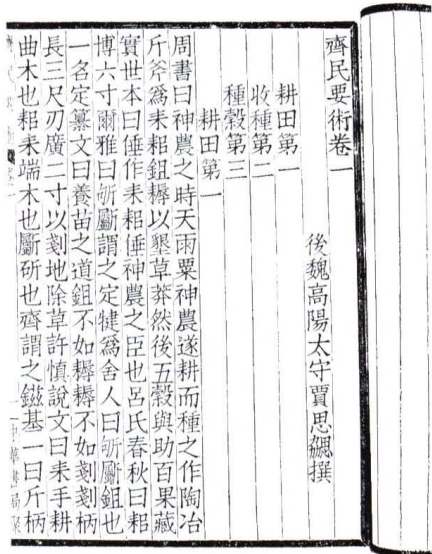 齊民要術卷一
後魏高陽太守賈思勰撰
耕田第一
收種第二
種穀第三
耕田第一
周書曰神農之時天雨粟神農遂耕而種之作陶冶
斤斧爲耒耜鉏耨以墾草莽然後五穀與助百果藏
實世本曰倕作耒耜倕神農之臣也呂氏春秋曰耜
博六寸爾雅曰斪斸謂之定犍爲舍人曰斪斸鉏也
一名定纂文曰養苗之道鉏不如耨耨不如剗剗柄
長三尺刃廣二寸以剗地除草許慎說文曰耒手耕
曲木也耜耒端木也斸斫也齊謂之鎡基一曰斤柄
中華書局聚